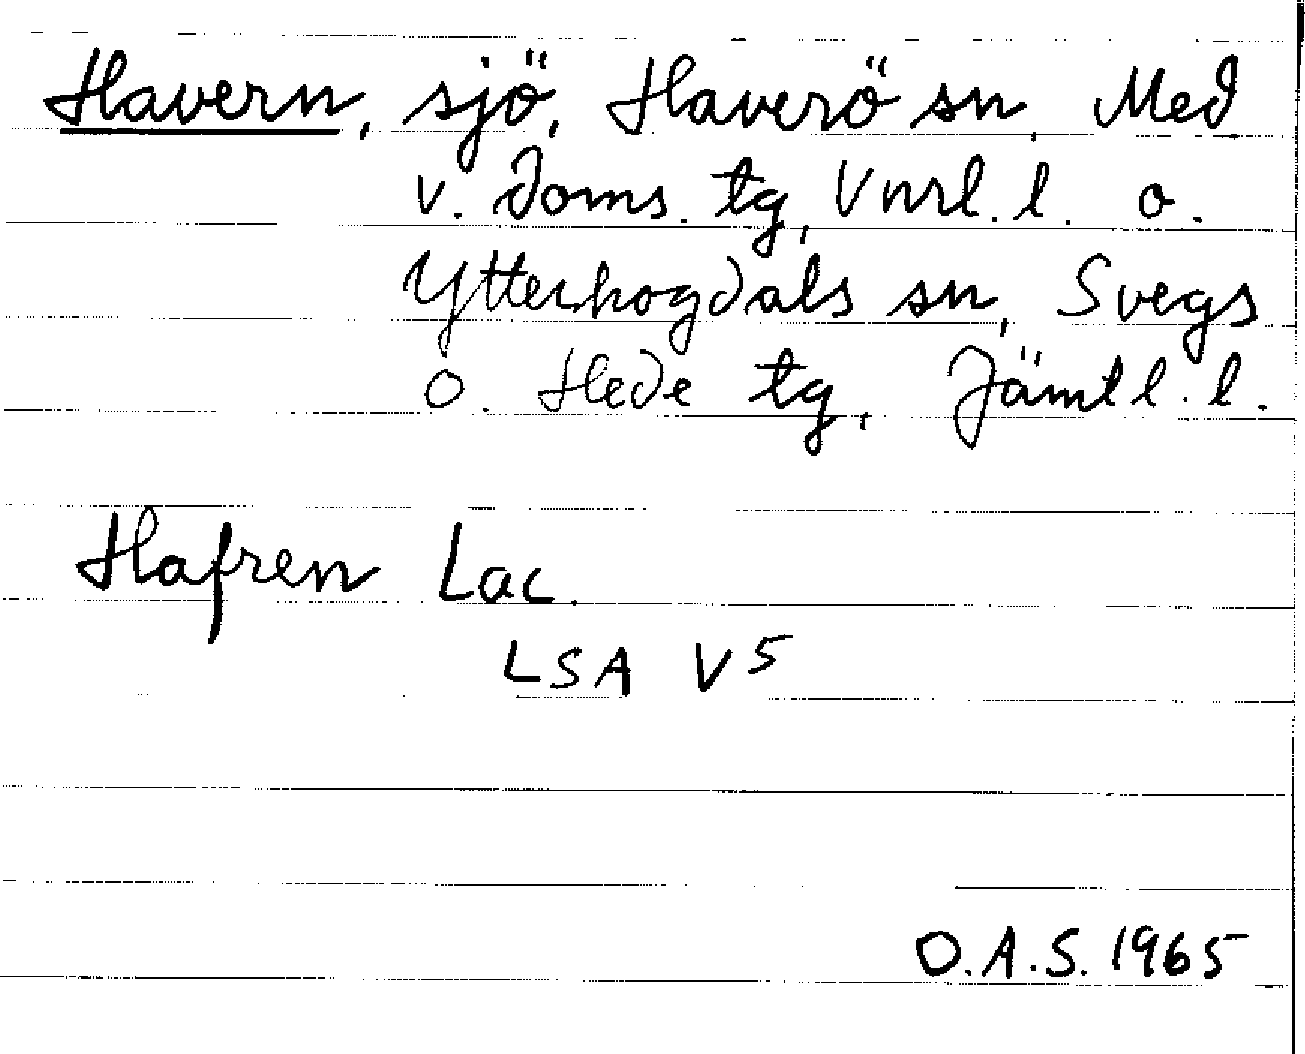 Havern, sjö, Haverö sn, Med
v. doms. tg, Vnrl. l. o.
Ytterhogdals sn, Svegs
o. Hede tg, Jämtl. l.
Hafren Lac.
LSA V5
O.A.S. 1965